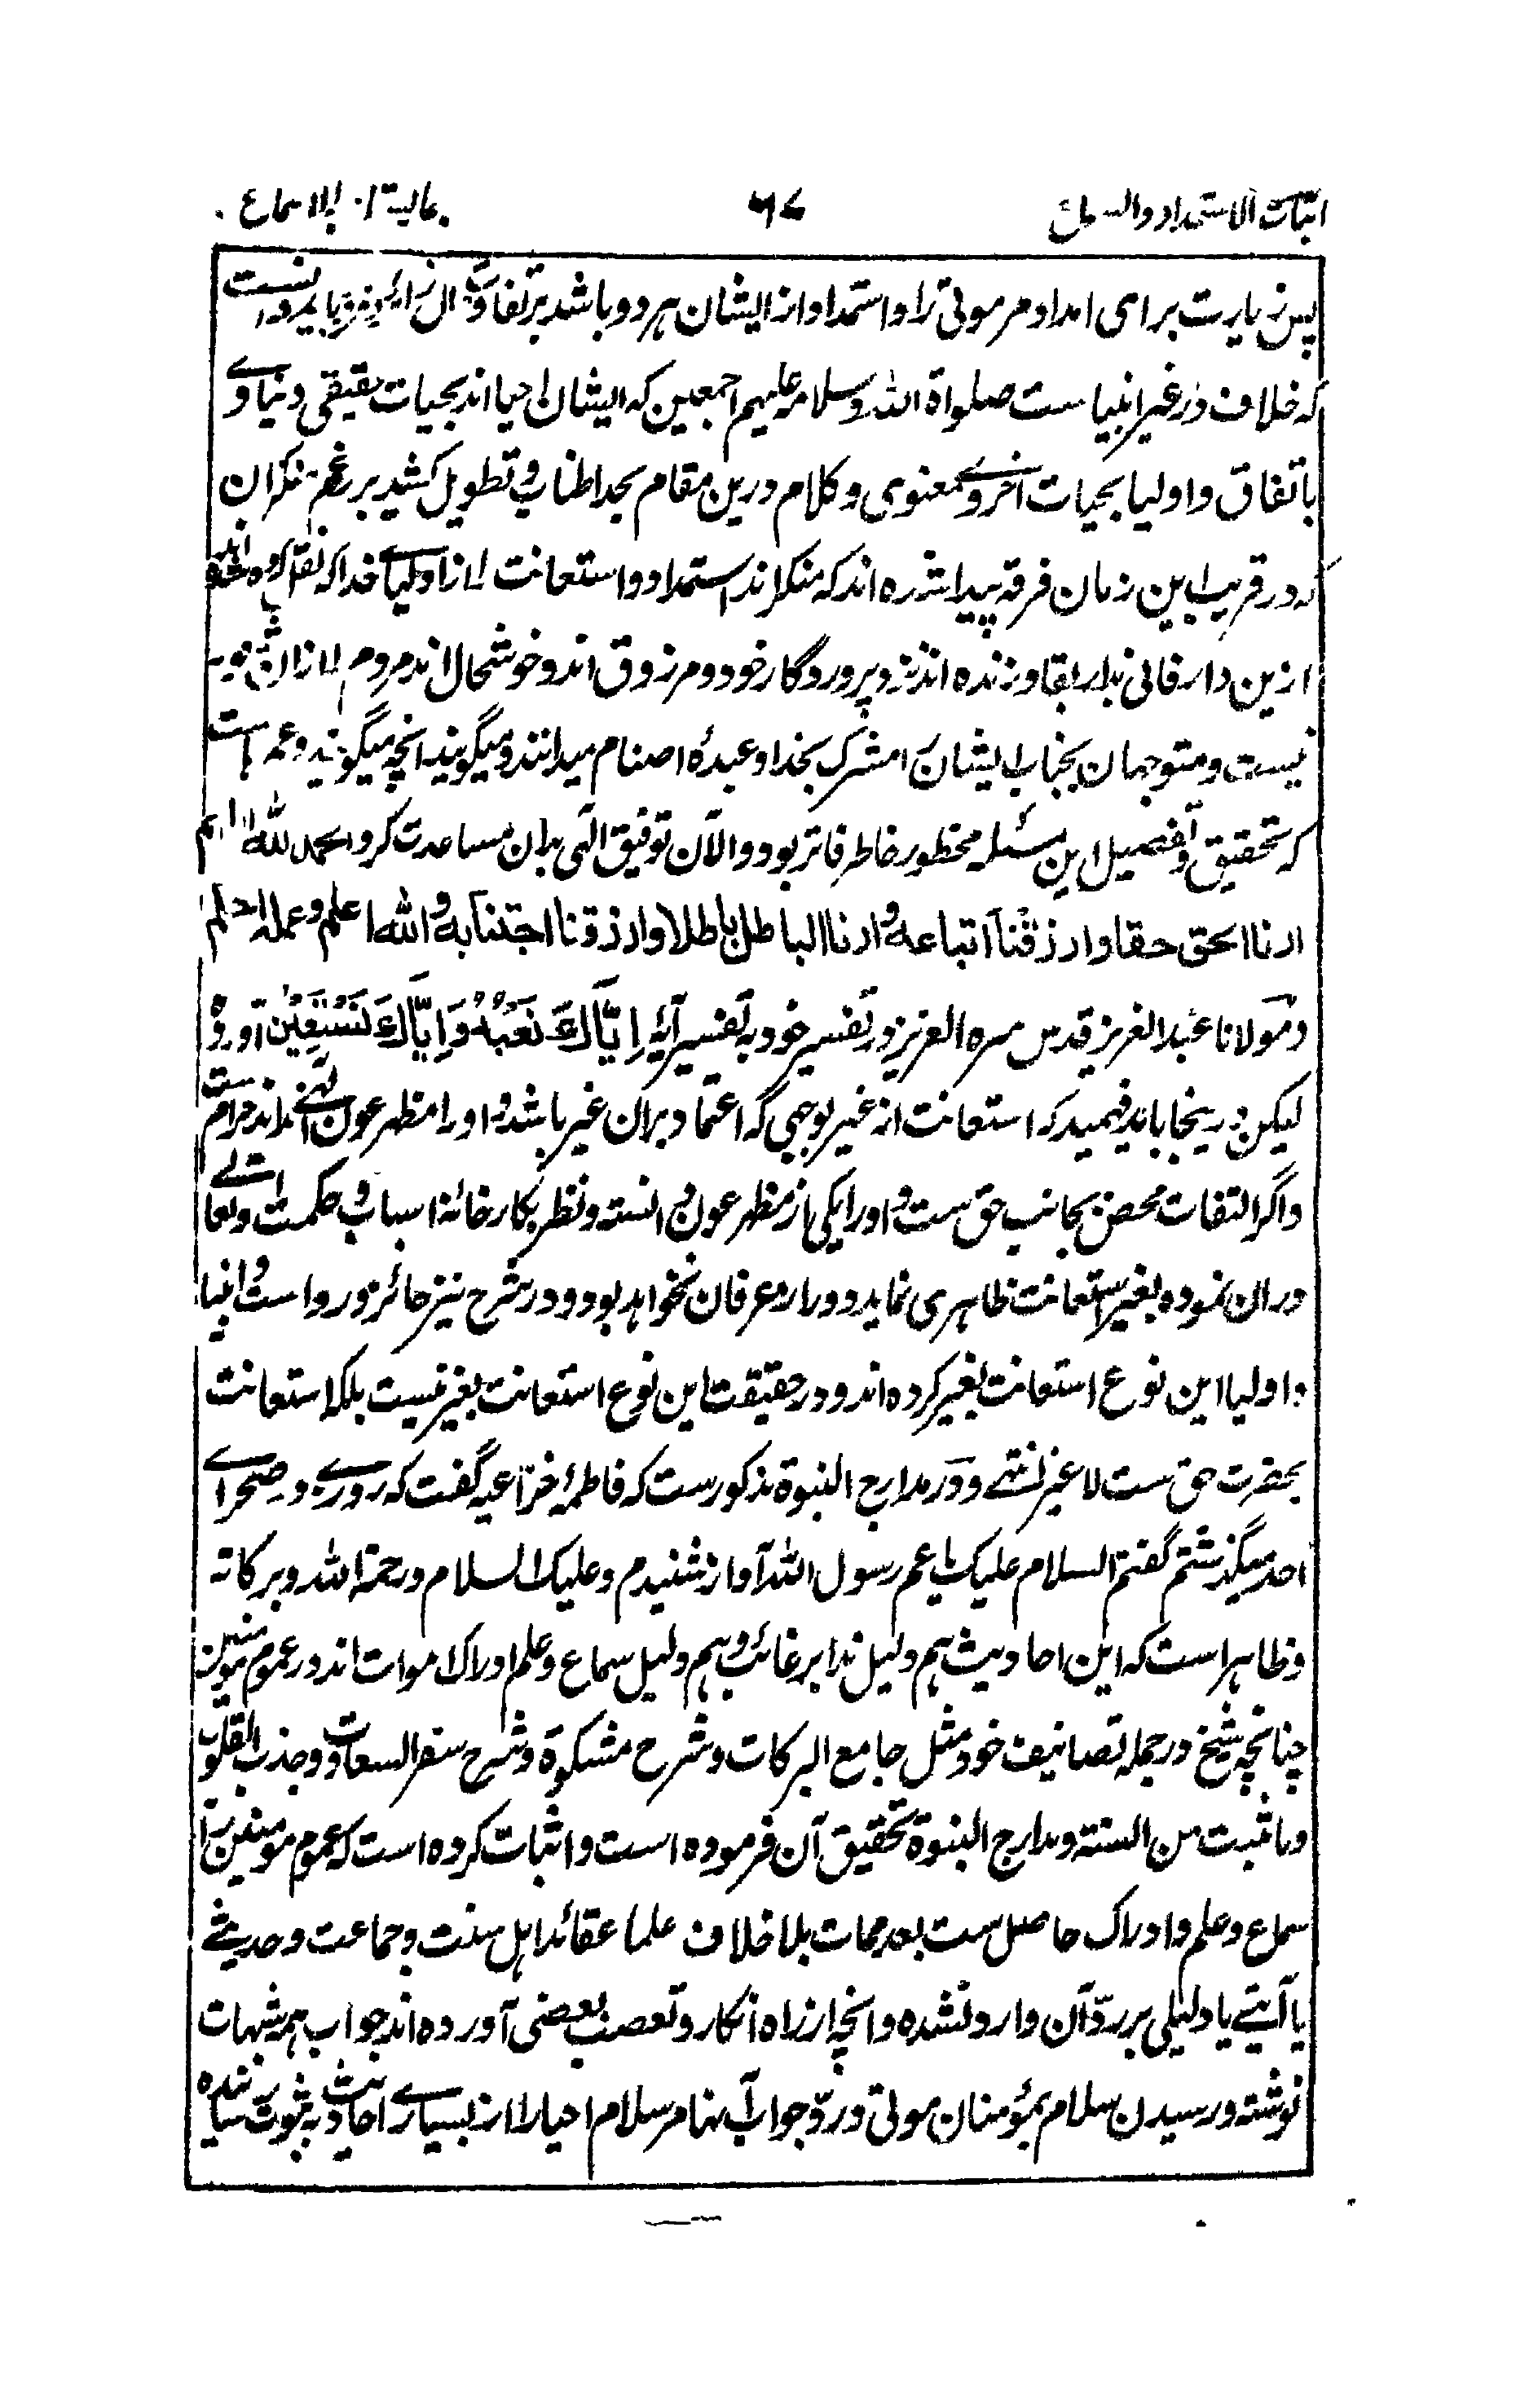 اثبات الاستمداد والسماع
۶۷
پس زیارت برای امداد مر موتی را و استمداد از ایشان هر دو باشد بر تفاوت حال زائر و مزور و باید دانست
که خلاف در غیر انبیاست صلواة الله وسلامه علیهم اجمعین که ایشان احیا اند بحیات حقیقی دنیاوے
باتفاق و اولیا بحیات اخروے معنوی و کلام درین مقام بحد اطناب و تطویل کشید بر رغم منکران
که در قریب این زمان فرقه پیدا شده اند که منکر اند استمداد و استعانت را از اولیاے خدا که نقل کرده شده اند
ازین دار فانی بدار بقا و زنده اند نزد پروردگار خود و مرزوق اند و خوشحال اند و مردم را ازان شعور
نیست و متوجهان بجناب ایشان را مشرک بخدا و عبدهٔ اصنام میدانند و میگویند انچه میگویند و عمرهاست
که تحقیق و تفصیل این مسئله محظور خاطر فاتر بود و الآن توفیق الٰهی بدان مساعدت کرد الحمد لله اللهم
ارنا الحق حقا وارزقنا اتباعه وارنا الباطل باطلا وارزقنا اجتنابه والله اعلم وعلمه احکم
و مولانا عبد العزیز قدس سره العزیز در تفسیر خود به تفسیر آیه اِیَّاكَ نَعْبُدُ وَاِیَّاكَ نَسْتَعِیْنُ آورده
لیکن درینجا باید فهمید که استعانت از غیر بوجهی که اعتماد بران غیر باشد و او را مظهر عون الٰهی نداند حرام ست
و اگر التفات محض بجانب حق ست و او را یکی از مظهر عون دانسته و نظر بکارخانهٔ اسباب و حکمت او تعالے
دران نموده بغیر استعانت ظاهری نماید دور از معرفان نخواهد بود و در شرع نیز جائز و رواست و انبیا
و اولیا این نوع استعانت بغیر کرده اند و در حقیقت این نوع استعانت بغیر نیست بلکه استعانت
بحضرت حق ست لا غیر انتهے و در مدارج النبوة مذکورست که فاطمهٔ خزاعیه گفت که روزے در صحراے
احد میگذشتم گفتم السلام علیك یا عم رسول الله آواز شنیدم وعلیك السلام ورحمة الله وبرکاته
و ظاهر است که این احادیث هم دلیل ندا بر غائب و هم دلیل سماع و علم و ادراک اموات اند در عموم مومنین
چنانچه شیخ در جمله تصانیف خود مثل جامع البرکات و شرح مشکوة و شرح سفر السعادت و جذب القلوب
و ما ثبت من السنة و مدارج النبوة تحقیق آن فرموده است و اثبات کرده است که عموم مومنین را
سماع و علم و ادراک حاصل ست بعد ممات بلا خلاف علما عقائد اهل سنت و جماعت و حدیثے
یا آیتے یا دلیلی بر ردّ آن وارد نشده و انچه از راه انکار و تعصب بعضی آورده اند جواب همه شبهات
نوشته و رسیدن سلام بمؤمنان موتی و ردّ جواب آنها مر سلام احیا را از بسیارے احادیث به ثبوت رسانیده